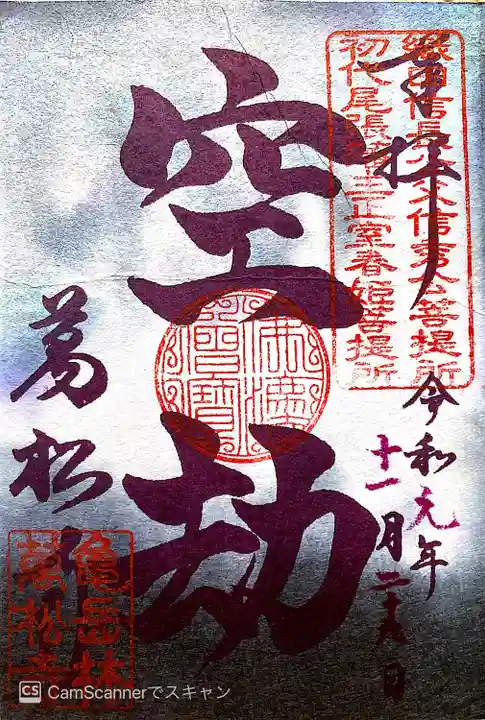 奉拝
織田信長公父信秀公菩提所
初代尾張藩主正室春姫菩提所
令和元年
十一月二十九日
空劫
佛法僧寶
萬松寺
亀岳林
萬松寺
CS CamScannerでスキャン